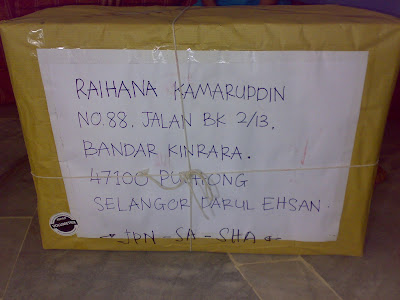 RAIHANA KAMARUDDIN
NO.88, JALAN BK 2/13,
BANDAR KINRARA.
47100 PUCHONG
SELANGOR DARUL EHSAN.
JPN - SA - SHA